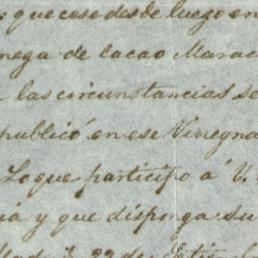 que cese desde luego en
nega de cacao Marac
las circunstancias se
publicó en ese Virreyna
Lo que participo á V.
ia y que disponga su
22 de